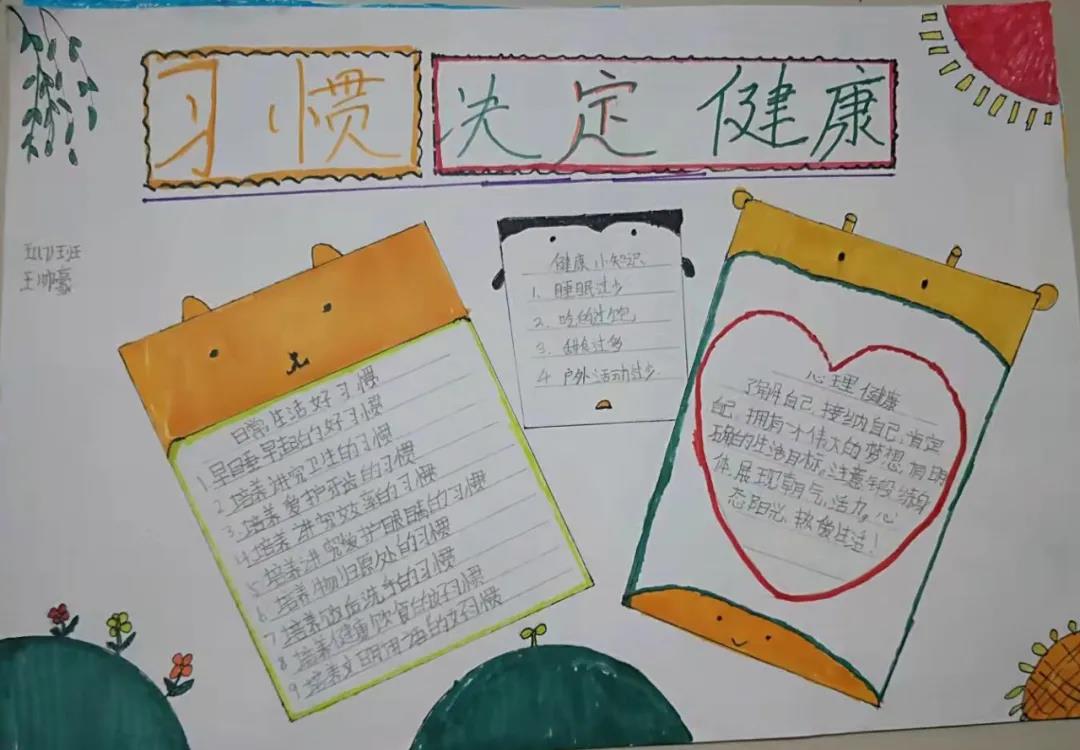 习惯 决定 健康
五(1)班
王帅豪
日常生活好习惯
1.早睡早起的好习惯
2.培养讲究卫生的习惯
3.培养爱护牙齿的习惯
4.培养讲究效率的习惯
5.培养讲究爱护眼睛的习惯
6.培养物归原处的习惯
7.培养饭后洗手的习惯
8.培养健康饮食的好习惯
9.培养文明用语的好习惯
健康小知识
1.睡眠过少
2.吃的过饱
3.甜食过多
4.户外活动过少
心理健康
了解自己,接纳自己,肯定
自己,拥有一个伟大的梦想,有明
确的生活目标,注意锻炼身
体,展现朝气、活力。心
态阳光,热爱生活!